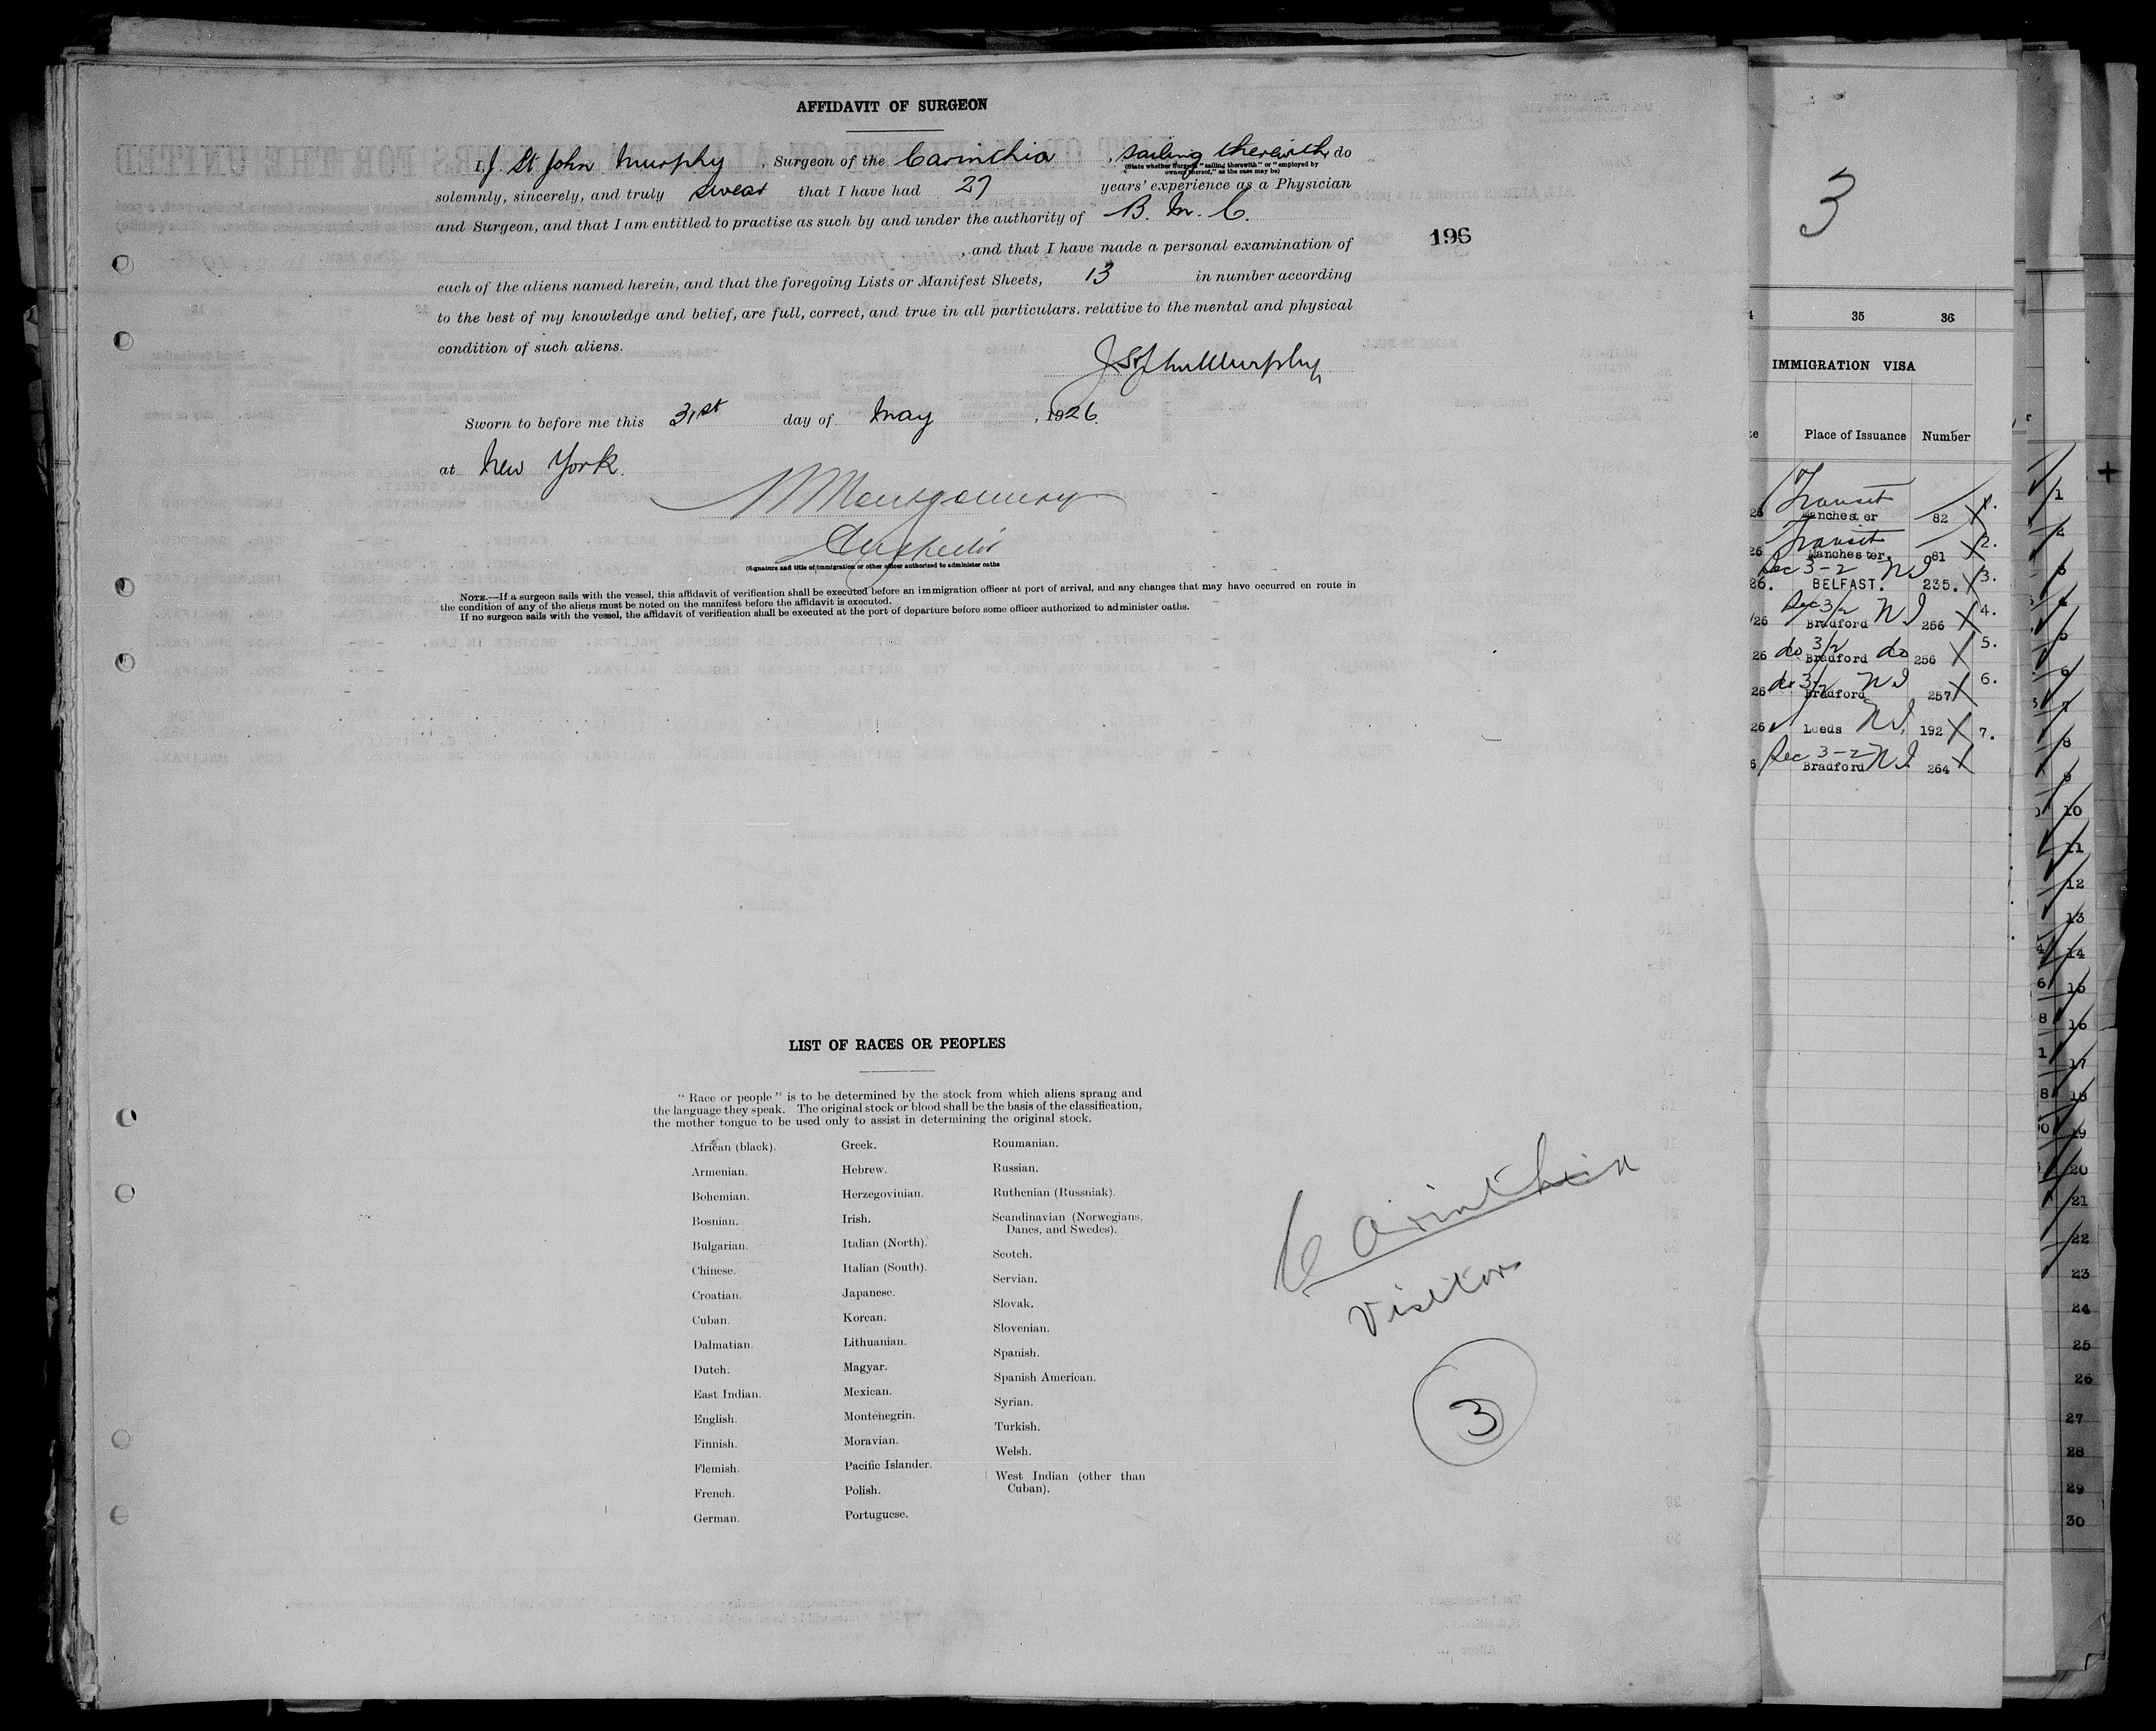 AFFIDAVIT OF SURGEON
I, J. St John Murphy, Surgeon of the Carinthia, sailing therewith, do
(State whether Surgeon "sailing therewith" or "employed by
owners thereof," as the case may be)
solemnly, sincerely, and truly swear that I have had 27 years' experience as a Physician
and Surgeon, and that I am entitled to practise as such by and under the authority of B. M. C.
, and that I have made a personal examination of
each of the aliens named herein, and that the foregoing Lists or Manifest Sheets, 13 in number according
to the best of my knowledge and belief, are full, correct, and true in all particulars, relative to the mental and physical
condition of such aliens.
J St John Murphy
Sworn to before me this 31st day of May, 1926.
at New York.
Montgomery
(Signature and title of immigration or other officer authorized to administer oaths
NOTE.—If a surgeon sails with the vessel, this affidavit of verification shall be executed before an immigration officer at port of arrival, and any changes that may have occurred en route in
the condition of any of the aliens must be noted on the manifest before the affidavit is executed.
If no surgeon sails with the vessel, the affidavit of verification shall be executed at the port of departure before some officer authorized to administer oaths.
196
LIST OF RACES OR PEOPLES
"Race or people" is to be determined by the stock from which aliens sprang and
the language they speak. The original stock or blood shall be the basis of the classification,
the mother tongue to be used only to assist in determining the original stock.
African (black).
Armenian.
Bohemian.
Bosnian.
Bulgarian.
Chinese.
Croatian.
Cuban.
Dalmatian.
Dutch.
East Indian.
English.
Finnish.
Flemish.
French.
German.
Greek.
Hebrew.
Herzegovinian.
Irish.
Italian (North).
Italian (South).
Japanese.
Korean.
Lithuanian.
Magyar.
Mexican.
Montenegrin.
Moravian.
Pacific Islander.
Polish.
Portuguese.
Roumanian.
Russian.
Ruthenian (Russniak).
Scandinavian (Norwegians,
Danes, and Swedes).
Scotch.
Servian.
Slovak.
Slovenian.
Spanish.
Spanish American.
Syrian.
Turkish.
Welsh.
West Indian (other than
Cuban).
Carinthia
Visitors
3
3
35 36
IMMIGRATION VISA
Place of Issuance Number
Transit
26 Manchester 82 X 1.
Transit
26 Manchester. 81 X 2.
Sec 3-2 NI
26. BELFAST. 235. X 3.
Sec 3/2 NI
/26 Bradford 256 X 4.
do 3/2 do
26 Bradford 256 X 5.
do 3/2 NI
26 Bradford 257 X 6.
26 Leeds NI 192 X 7.
Sec 3-2 NI
6 Bradford 264 X
1
2
3
4
5
6
7
8
9
10
11
12
13
14
15
16
17
18
19
20
21
22
23
24
25
26
27
28
29
30